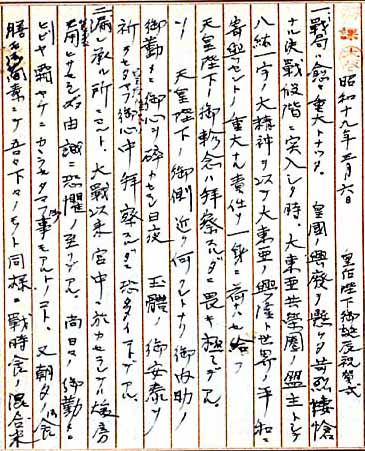 昭和十九年三月六日
皇后陛下御誕辰祝賀式
一、戦局ハ愈々重大トナツタ。皇國ノ興廃ヲ懸ケタ苛烈悽愴
ナル決戦段階ニ突入シタ時、大東亜共栄圏ノ盟主トシテ
八紘一宇ノ大精神ヲ以テ大東亜ノ興隆ト世界ノ平和ニ
寄與セントノ重大ナル責任ヲ一身ニ荷ハセ給フ
天皇陛下ノ御軫念ハ拝察スルダニ畏キ極ミデアル。
ソノ天皇陛下ノ御側近ク何クレトナク御内助ノ
御勤メニ御心ヲ砕カセラレ日夜 玉體ノ御安泰ヲ
祈ラセタマフ御心中拝察スルダニ恐多イコトデアル。
二、漏レ承ル所ニヨルト、大戦以来宮中ニ於カセラレテハ煖房
用ヒサセラレザル由誠ニ恐懼ノ至リデアル。尚日々ノ御勤モ
膳モ御簡素ニテ吾々下々ノモノト同様ニ戦時食ノ混合米